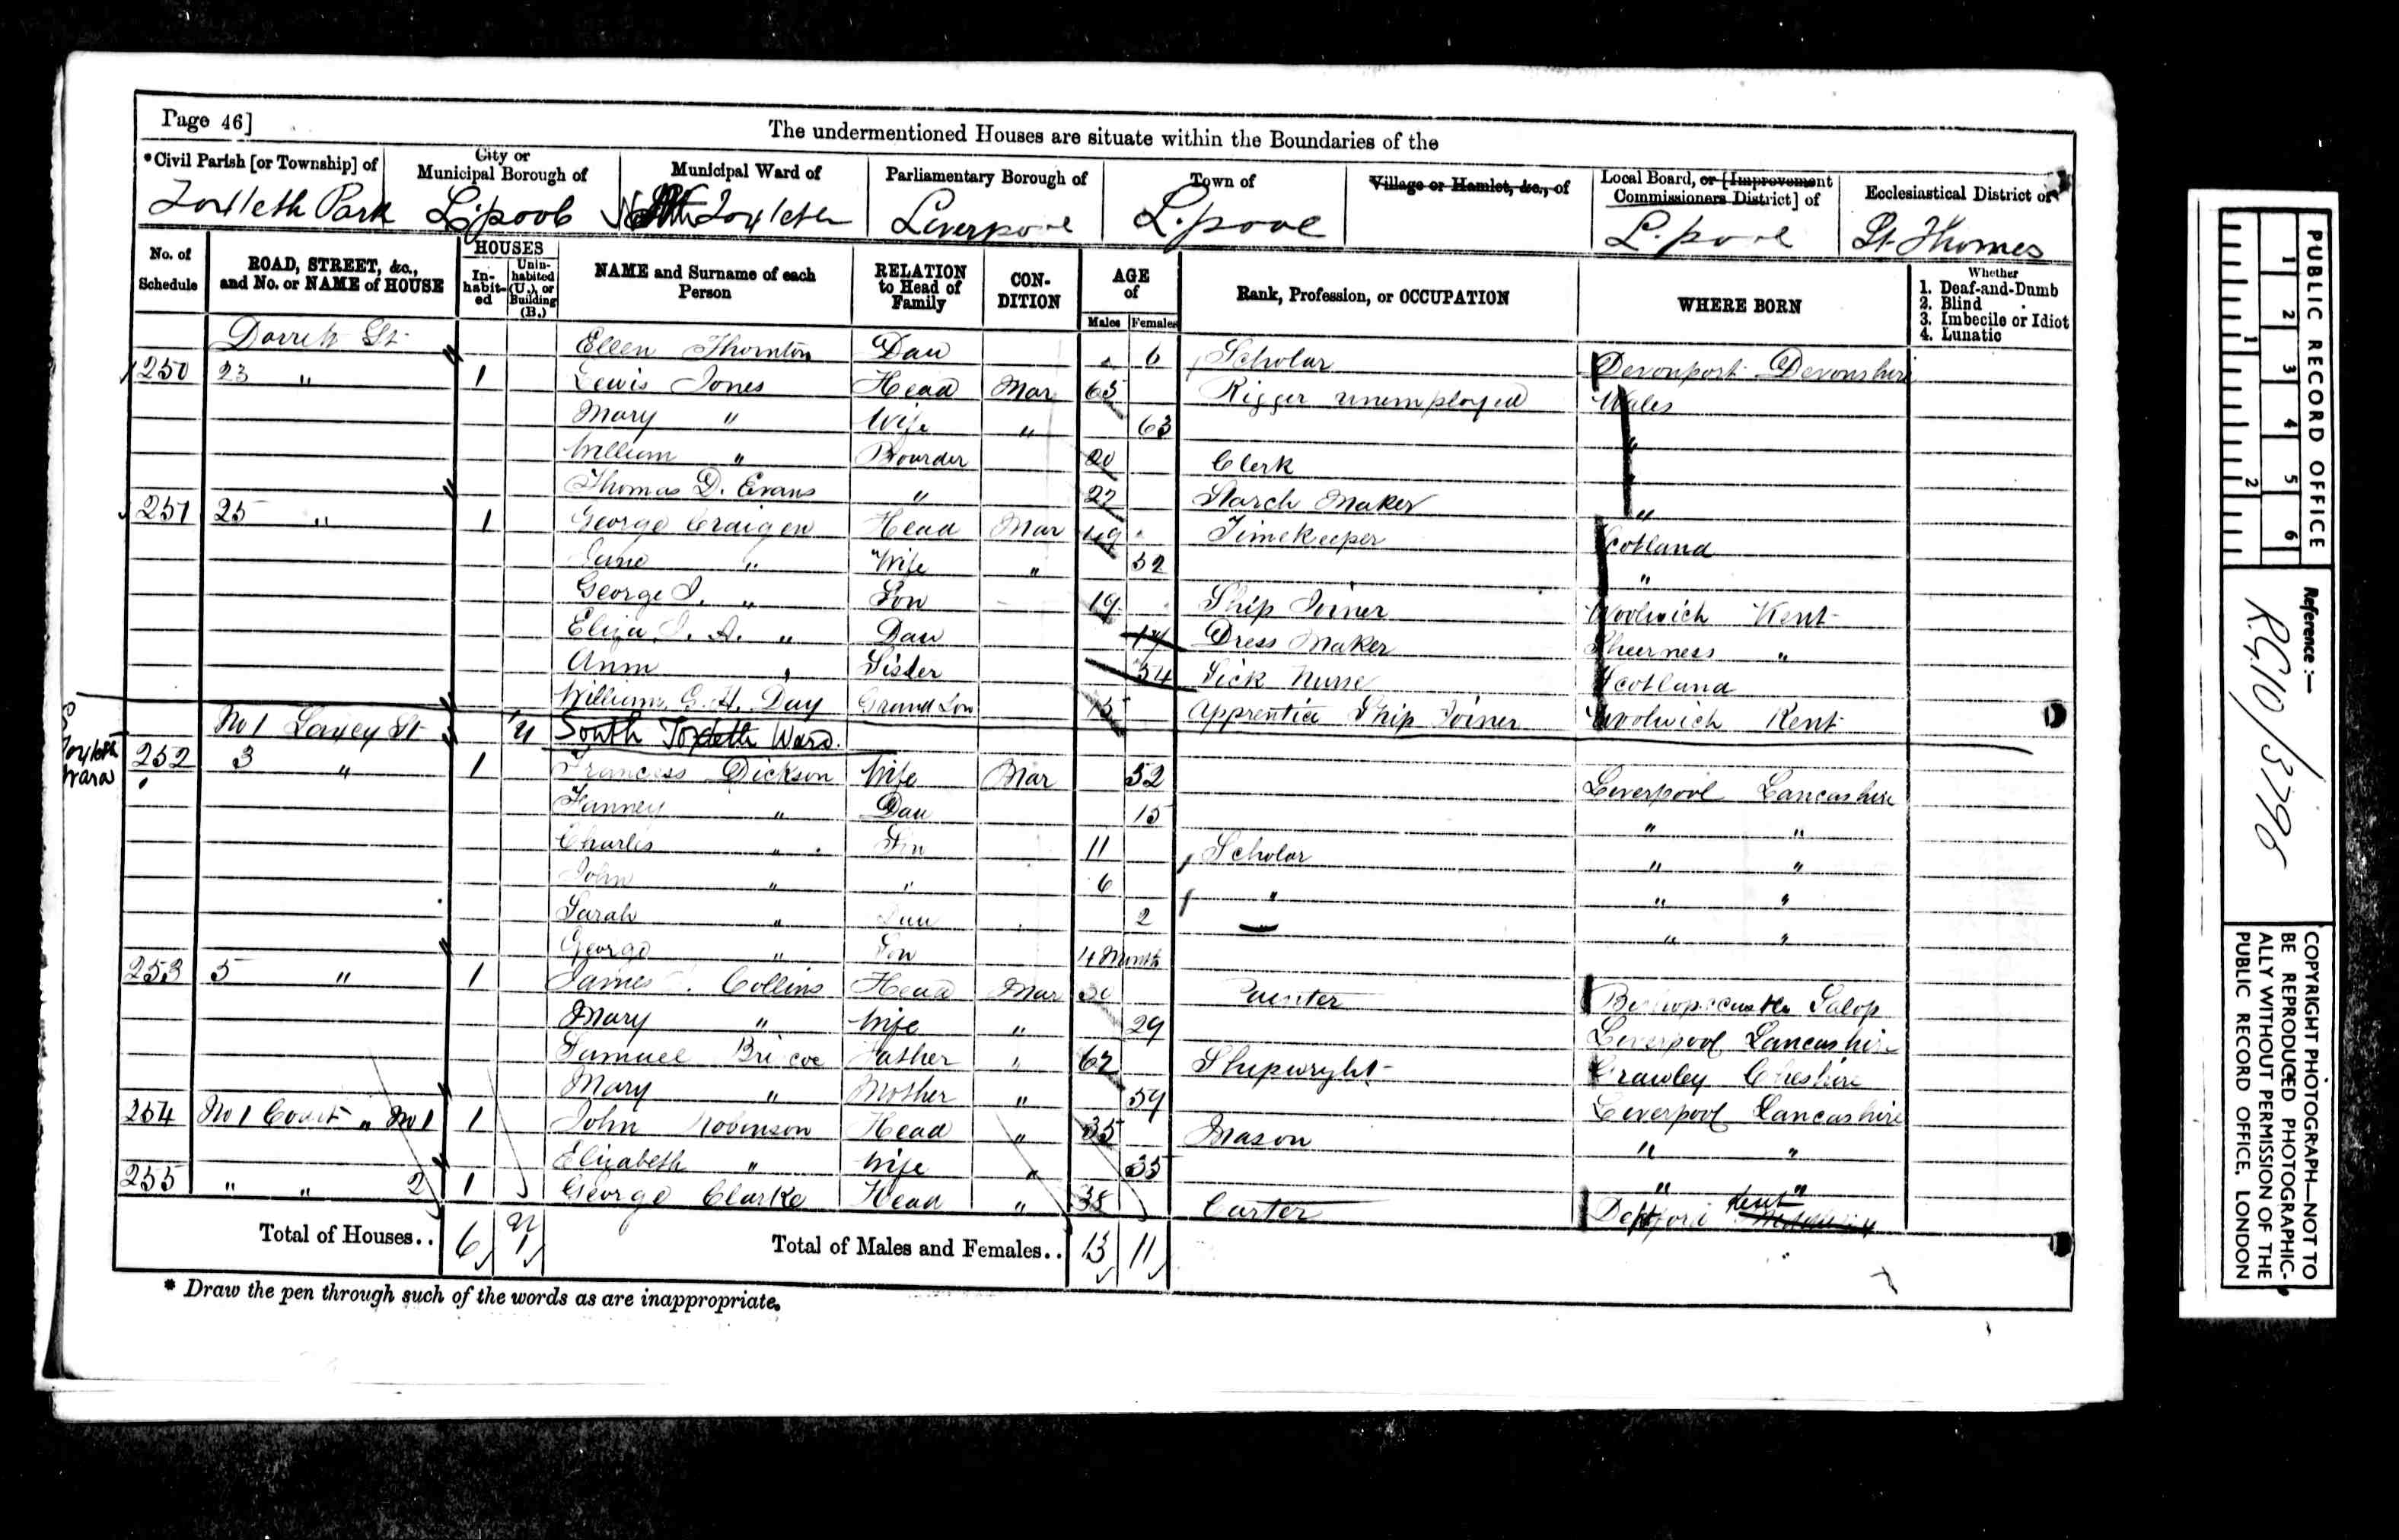 Page 46]
The undermentioned Houses are situate within the Boundaries of the
*Civil Parish [or Township] of
City or Municipal Borough of
Municipal Ward of
Parliamentary Borough of
Town of
Village or Hamlet, &c., of
Local Board, or [Improvement Commissioners District] of
Ecclesiastical District of
Toxteth Park L'pool Toxteth Liverpool L.pool L.pool St. Thomas
No. of Schedule
ROAD, STREET, &c., and No. or NAME of HOUSE
HOUSES
In-habit-ed
Unin-habited (U.), or Building (B.)
NAME and Surname of each Person
RELATION to Head of Family
CON-DITION
AGE of
Males Females
Rank, Profession, or OCCUPATION
WHERE BORN
Whether
1. Deaf-and-Dumb
2. Blind
3. Imbecile or Idiot
4. Lunatic
St Ellen Thornton Dau 6 Scholar Devonport Devonshire
250 23 " 1 Lewis Jones Head Mar 65 Rigger unemployed Wales
Mary " Wife " 63 "
William " Boarder 20 Clerk "
Thomas D. Evans " 22 Starch Maker "
251 25 " 1 George Craigen Head Mar 49 Timekeeper Scotland
Jane " Wife " 52 "
George J. " Son 19 Ship Joiner Woolwich Kent
Eliza J. A. " Dau 14 Dress Maker Sheerness "
Ann " Sister 54 Sick Nurse Scotland
William G. H. Day Grand Son 15 Apprentice Ship Joiner Woolwich Kent
No 1 Laxey St U South Toxteth Ward.
Toxteth Ward
252 3 " 1 Frances Dickson Wife Mar 52 Liverpool Lancashire
Fanney " Dau 15 " "
Charles " Son 11 Scholar " "
John " " 6 " " "
Sarah " Dau 2 " "
George " Son 4 Months
253 5 " 1 James Collins Head Mar 30 Painter Bishopscastle Salop
Mary " Wife " 29 Liverpool Lancashire
Samuel Briscoe Father " 62 Shipwright Crawley Cheshire
Mary " Mother " 59 Liverpool Lancashire
254 No 1 Court " No 1 1 John Robinson Head " 35 Mason " "
Elizabeth " Wife " 35 " "
255 " " 2 1 George Clarke Head " 38 Carter Deptford Kent
Total of Houses.. 6 U 1 Total of Males and Females.. 13 11
* Draw the pen through such of the words as are inappropriate.
PUBLIC RECORD OFFICE
1 2 3 4 5 6
1 2
Reference :-
R.G. 10/3798
COPYRIGHT PHOTOGRAPH—NOT TO
BE REPRODUCED PHOTOGRAPHIC-
ALLY WITHOUT PERMISSION OF THE
PUBLIC RECORD OFFICE, LONDON